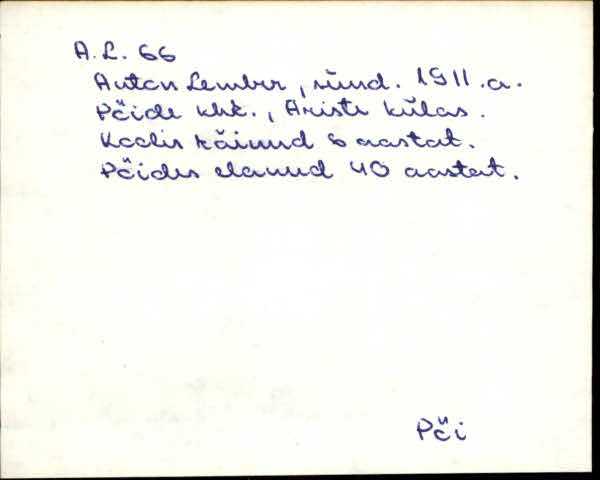 A. L. 66
Anton Lember, sünd. 1911. a.
Pöide khk., Ariste külas.
Koolis käinud 6 aastat.
Pöides elanud 40 aastat.
Pöi